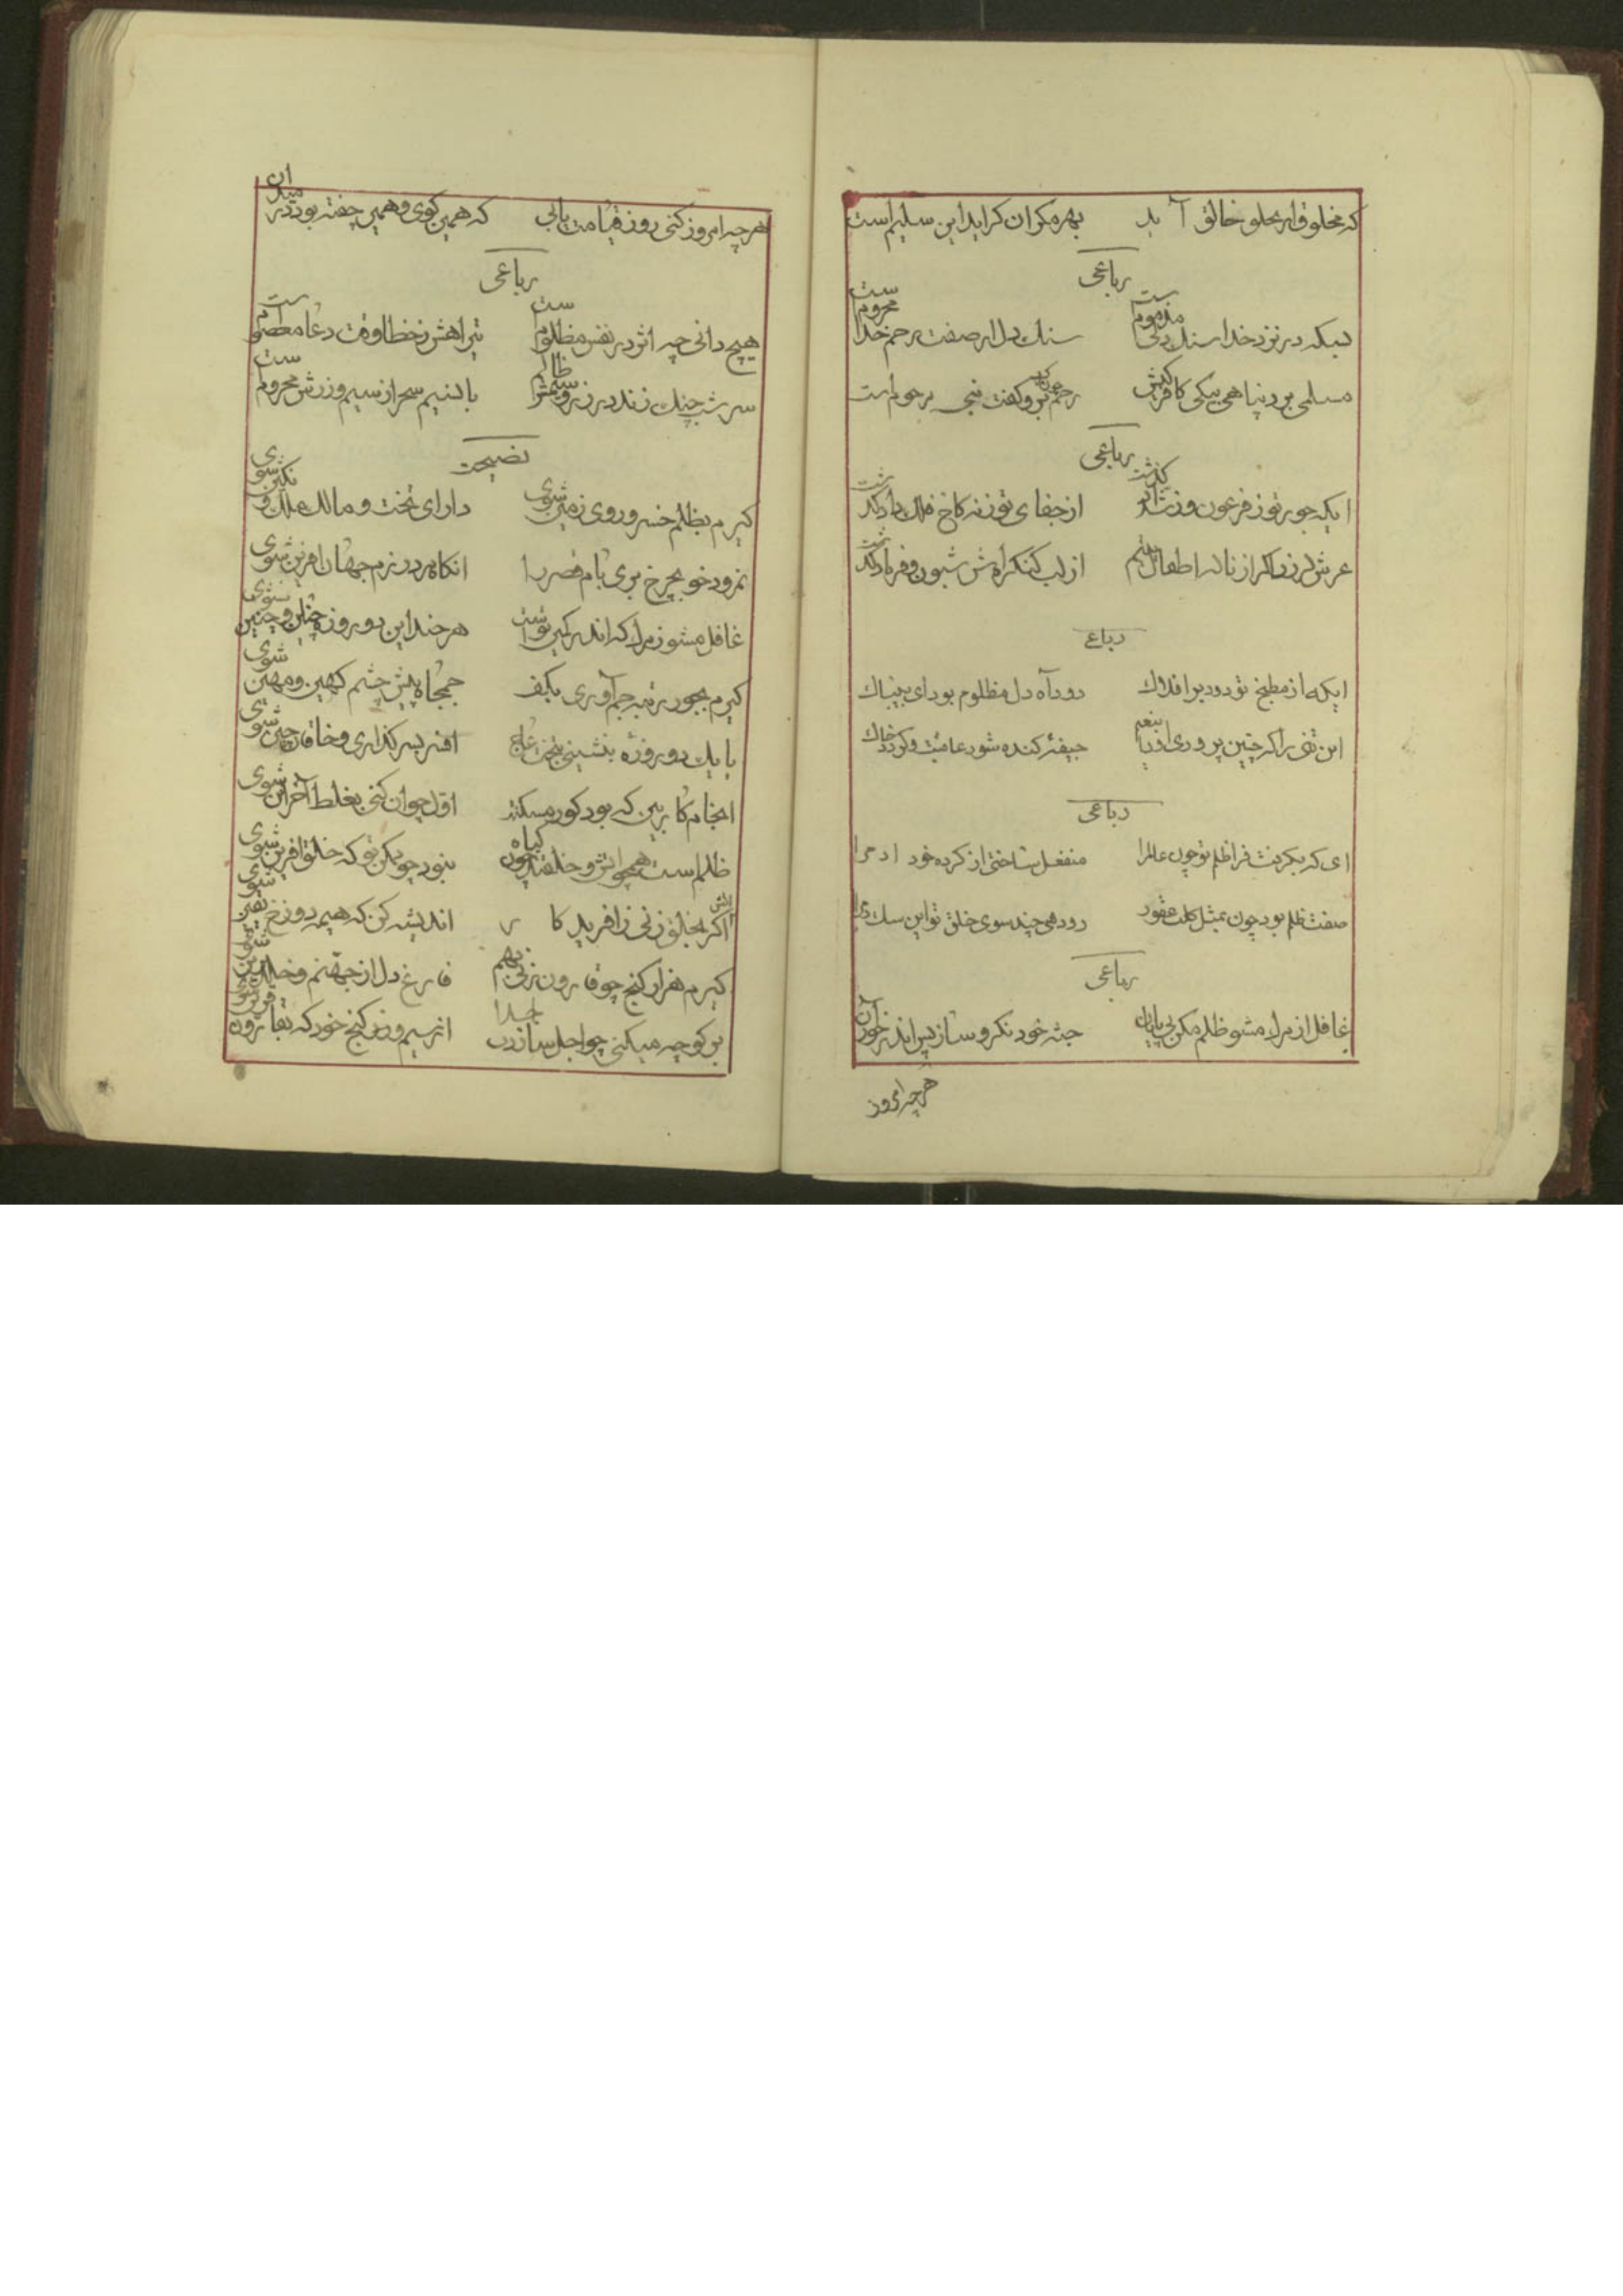 که مخلوق از بحلو خالق آید بهره مکران کراید این سلیم است
رباعی
بسکه در نزد خدا سنک دلی مذموم ست سنک دل از صفت رحم خدا محروم ست
مسلمی برد پناهی بیکی کافر کیش رحم بر و کفت نبی مرحوم است
رباعی
ایکه جور تو ز فرعون و ز شداد کذشت از جفای تو ز نه کاخ فلک داد کذشت
عرش لرزد اکر از ناله اطفال یتیم از لب کنکره اش شیون و فریاد کذشت
رباعی
ایکه از مطبخ تو دود بر افلاک دود آه دل مظلوم بود ای بیباک
این تنی را که چنین پروری او را بنعم جیفهٔ کنده شود عاقبت و کردد خاک
رباعی
ای که بکرفت فرا ظلم تو چون عالم را منفعل ساختی از کرده خود ادم را
صفت ظلم بود چون بمثل کلب عقور رو دهی چند سوی خلق تو این سک را
رباعی
غافل از مرک مشو ظلم مکن بی پایان جثه خود نکر و ساز پس اندر خور آن
هر چه امروز
هر چه امروز کنی روز قیامت یابی که همین کوی و همین چفته بود در میدان
رباعی
هیچ دانی چه اثر در نفس مظلوم ست تیر اهش ز خطا وقت دعا معصوم ست
سر شب چنک زند در زر و سیمش ظالم با نسیم سحر از سیم و زرش محروم ست
نصیحت
کیرم بظلم خسرو روی زمین شوی دارای تخت و مالک ملک و نکین شوی
نمرود خو بچرخ بری بام قصر را انکاه در رزم جهان افرین شوی
غافل مشو ز مرک که اندر کمین توست هر چند این دو روزه چنان و چنین شوی
کیرم بجور رتبه جم آوری بکف جمجاه پیش چشم کهین و مهین شوی
یا یک دو روزه بنشینی بتخت عاج افسر بسر کذاری و خاقان چین شوی
انجام کار بین که بود کور مسکنت اول چو ان کنی بغلط آخر این شوی
ظلم است همچو اتش و خلقند چون کیاه نبود چو یکن تو که خلق افرین شوی
اتش اکر بخلق زنی زافریدکار اندیشه کن که هیمه دوزخ یقین شوی
کیرم هزار کنج چو قارون نهی بهم فارغ دل از جهنم و خلد برین شوی
بر کو چه میکنی چو اجل سازدت جدا از سیم و زر کنج خود که بقارون قرین شوی